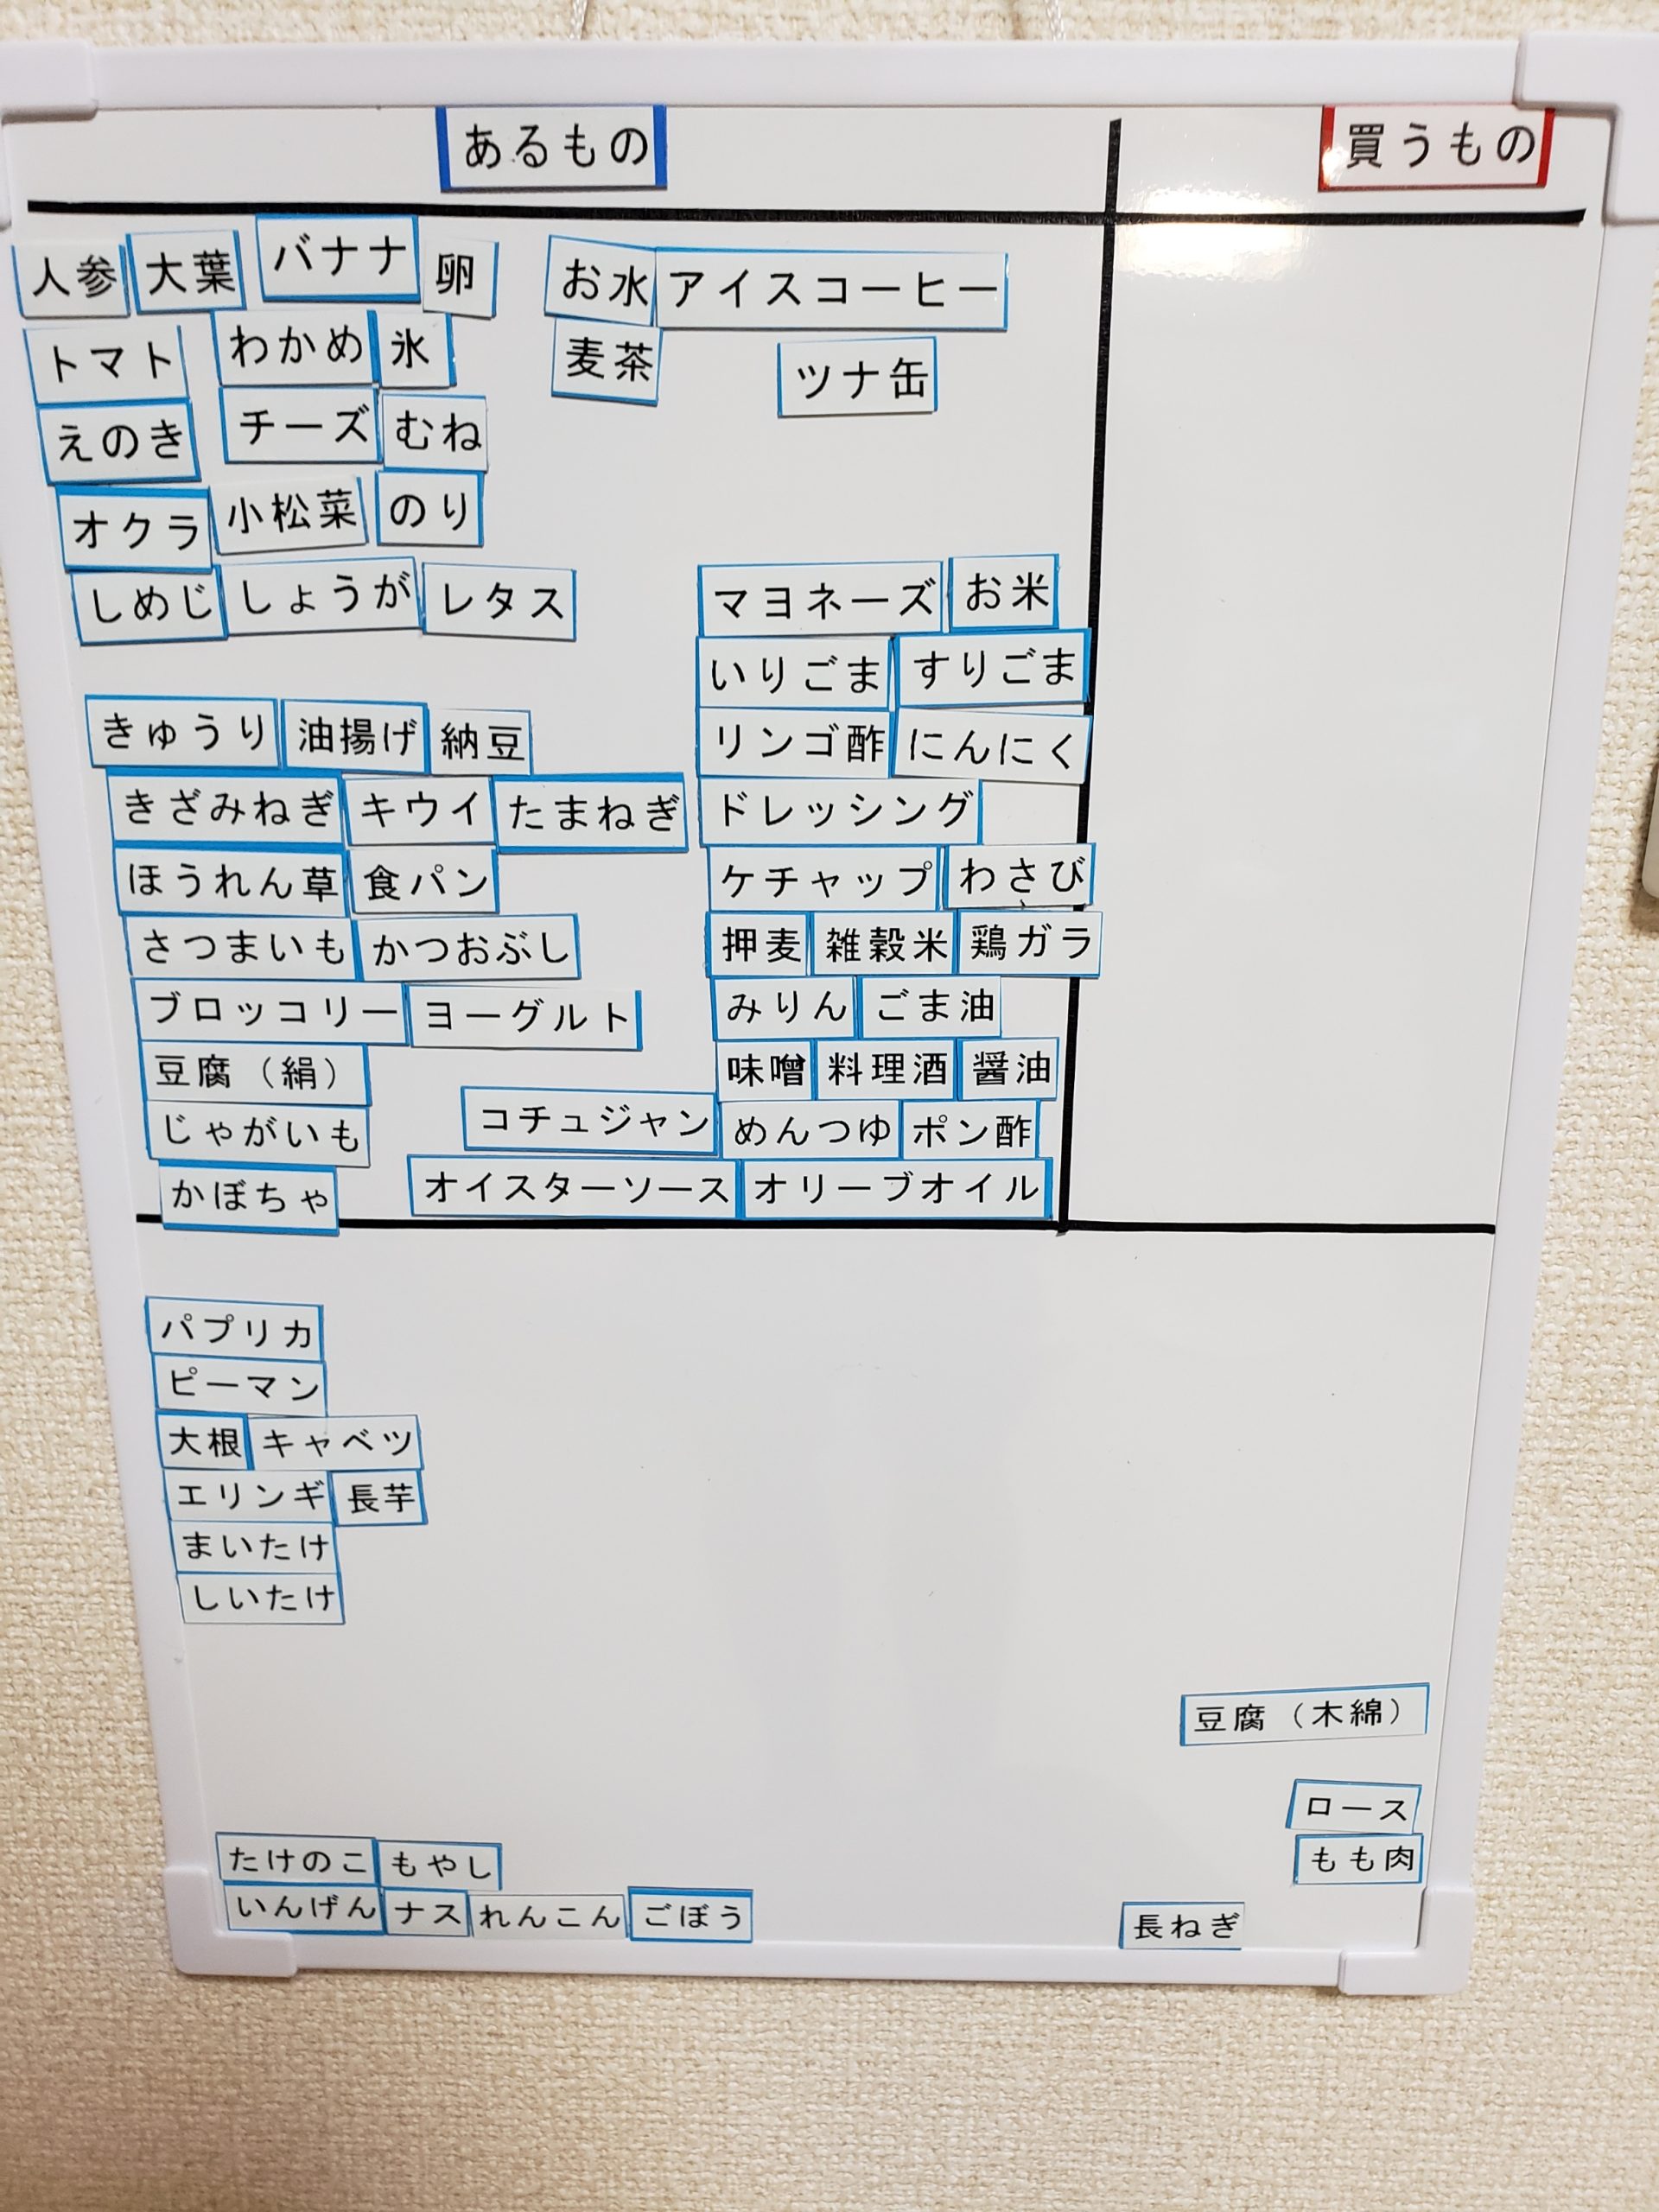 あるもの 買うもの
人参 大葉 バナナ 卵 お水 アイスコーヒー
トマト わかめ 氷 麦茶 ツナ缶
えのき チーズ むね
オクラ 小松菜 のり
しめじ しょうが レタス マヨネーズ お米
いりごま すりごま
きゅうり 油揚げ 納豆 リンゴ酢 にんにく
きざみねぎ キウイ たまねぎ ドレッシング
ほうれん草 食パン ケチャップ わさび
さつまいも かつおぶし 押麦 雑穀米 鶏ガラ
ブロッコリー ヨーグルト みりん ごま油
豆腐（絹） 味噌 料理酒 醤油
じゃがいも コチュジャン めんつゆ ポン酢
かぼちゃ オイスターソース オリーブオイル
パプリカ
ピーマン
大根 キャベツ
エリンギ 長芋
まいたけ
しいたけ
豆腐（木綿）
ロース
たけのこ もやし もも肉
いんげん ナス れんこん ごぼう 長ねぎ